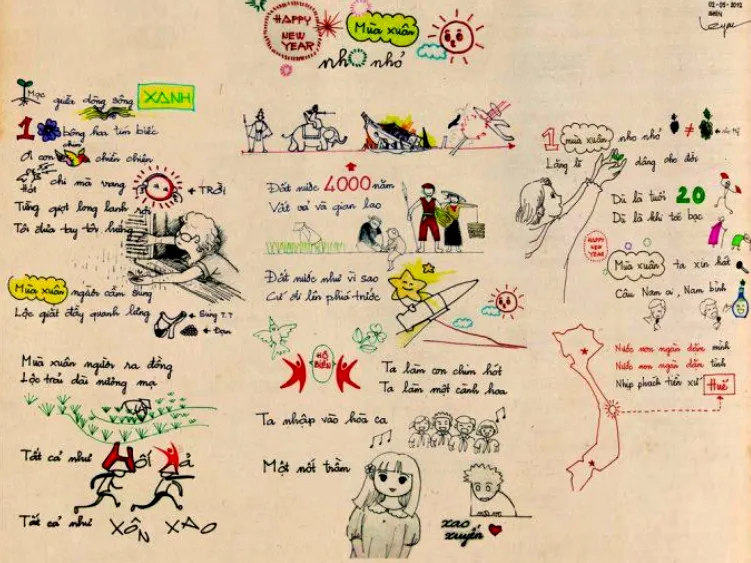 02-05-2012
HAPPY
NEW
YEAR
Mùa xuân
nho nhỏ
Mọc giữa dòng sông XANH
1 bông hoa tím biếc
Ơi con chim chiền chiện
Hót chi mà vang trời
+ TRỜI
Từng giọt long lanh rơi
Tôi đưa tay tôi hứng
Mùa xuân người cầm súng
Lộc giắt đầy quanh lưng
Súng ??
Đạn
Mùa xuân người ra đồng
Lộc trải dài nương mạ
Tất cả như HỐI HẢ
Tất cả như XÔN XAO
Đất nước 4000 năm
Vất vả và gian lao
Đất nước như vì sao
Cứ đi lên phía trước
HÔ BIẾN
Ta làm con chim hót
Ta làm một cành hoa
Ta nhập vào hòa ca
Một nốt trầm
xao
xuyến
1 mùa xuân nho nhỏ
Lặng lẽ dâng cho đời
Dù là tuổi 20
Dù là khi tóc bạc
HAPPY
NEW
YEAR
Mùa xuân ta xin hát
Câu Nam ai, Nam bình
Nước non ngàn dặm mình
Nước non ngàn dặm tình
Nhịp phách tiền xứ Huế